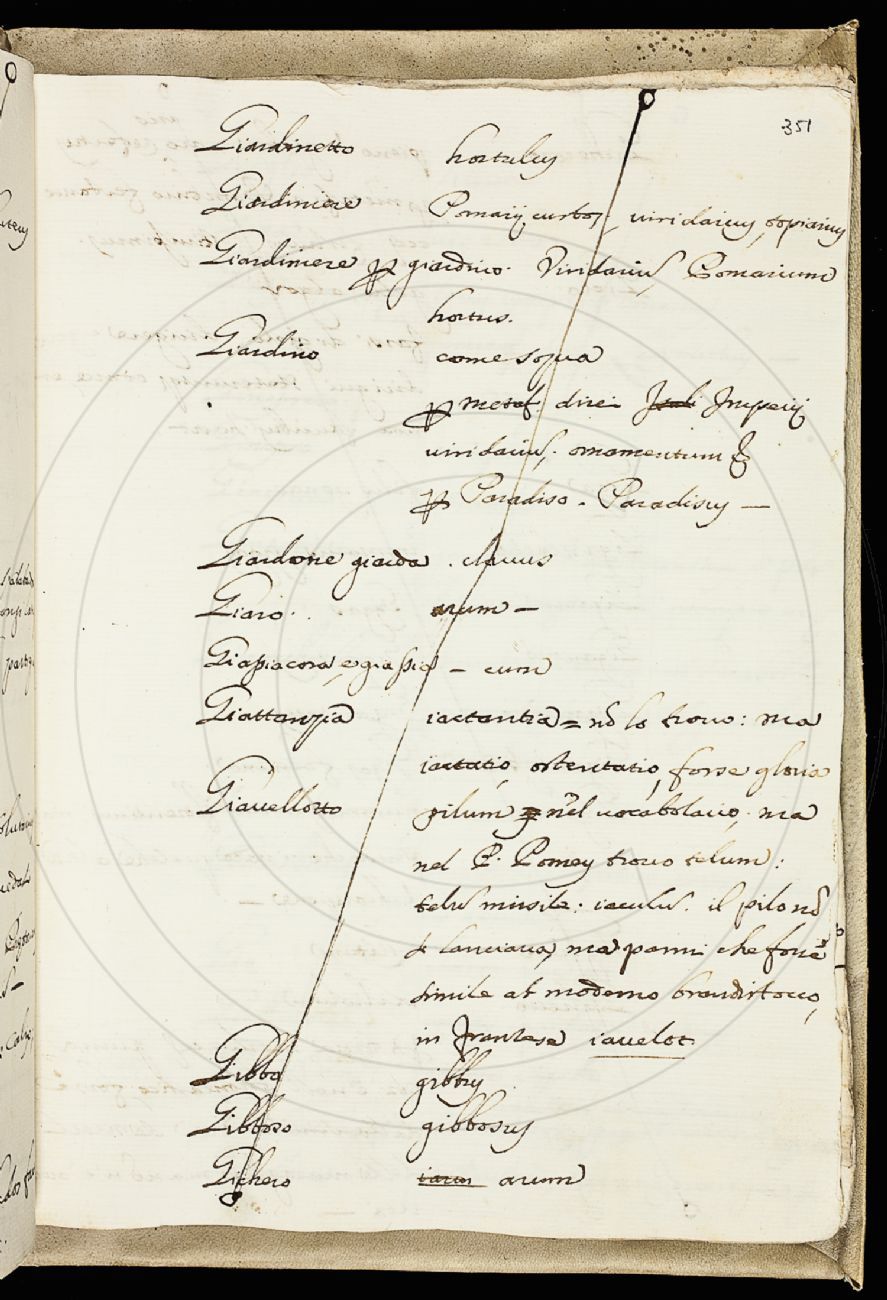 351
Giardinetto hortulus
Giardiniere Pomarij custos, viridarius, topiarius
Giardiniere p giardino. Viridariu, Pomarium
hortus.
Giardino come sopra
p metaf. direi Itali Imperij
viridariu, ornamentum &
p Paradiso. Paradisus —
Giardone giarda. clavus
Giaro. arum —
Giattanzia iactantia = nō lo trovo: ma
iactatio, ostentatio, forse gloria
Giavellotto pilum nel vocabolario, ma
nel P. Pomey trovo telum:
telu missile: iaculu. il pilo nō
si lanciava, ma parmi che fosse
simile al moderno brandistocco,
in franzese iavelot
Gibbo gibbus
Gibboso gibbosus
Gichero iarum arum